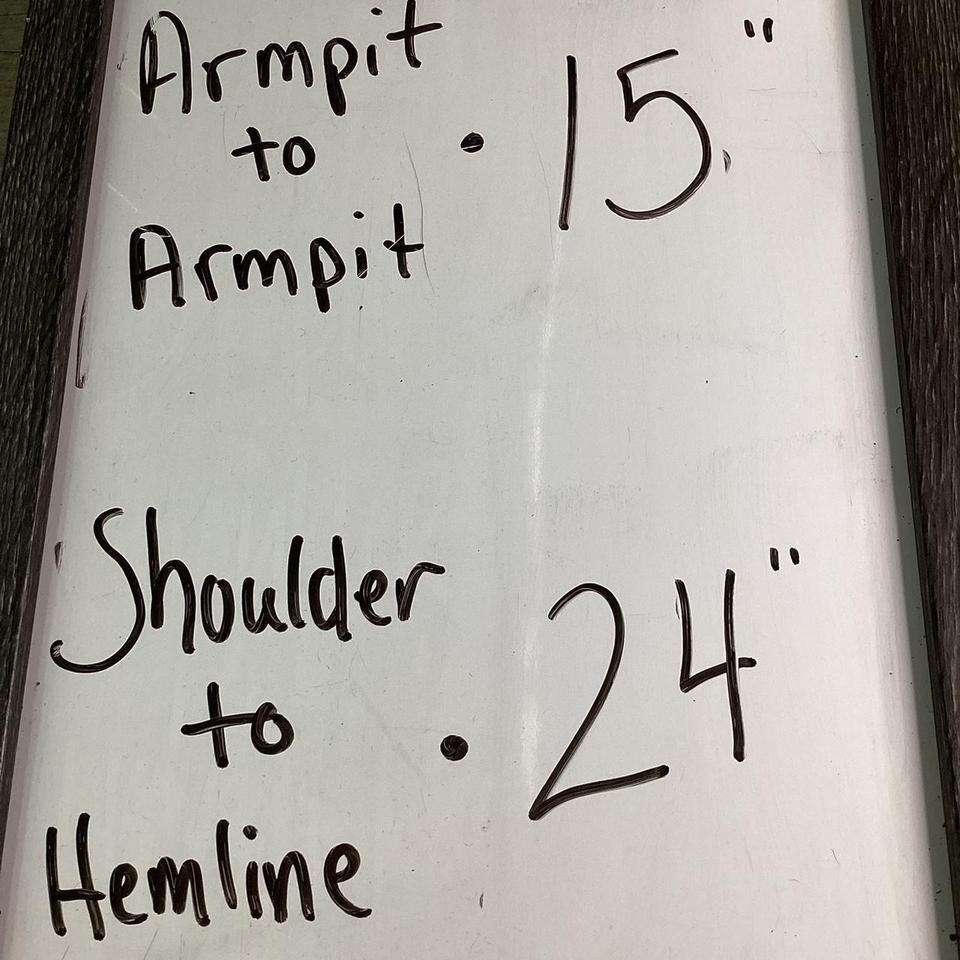 Armpit
to
Armpit
• 15"
Shoulder
to
Hemline
• 24"